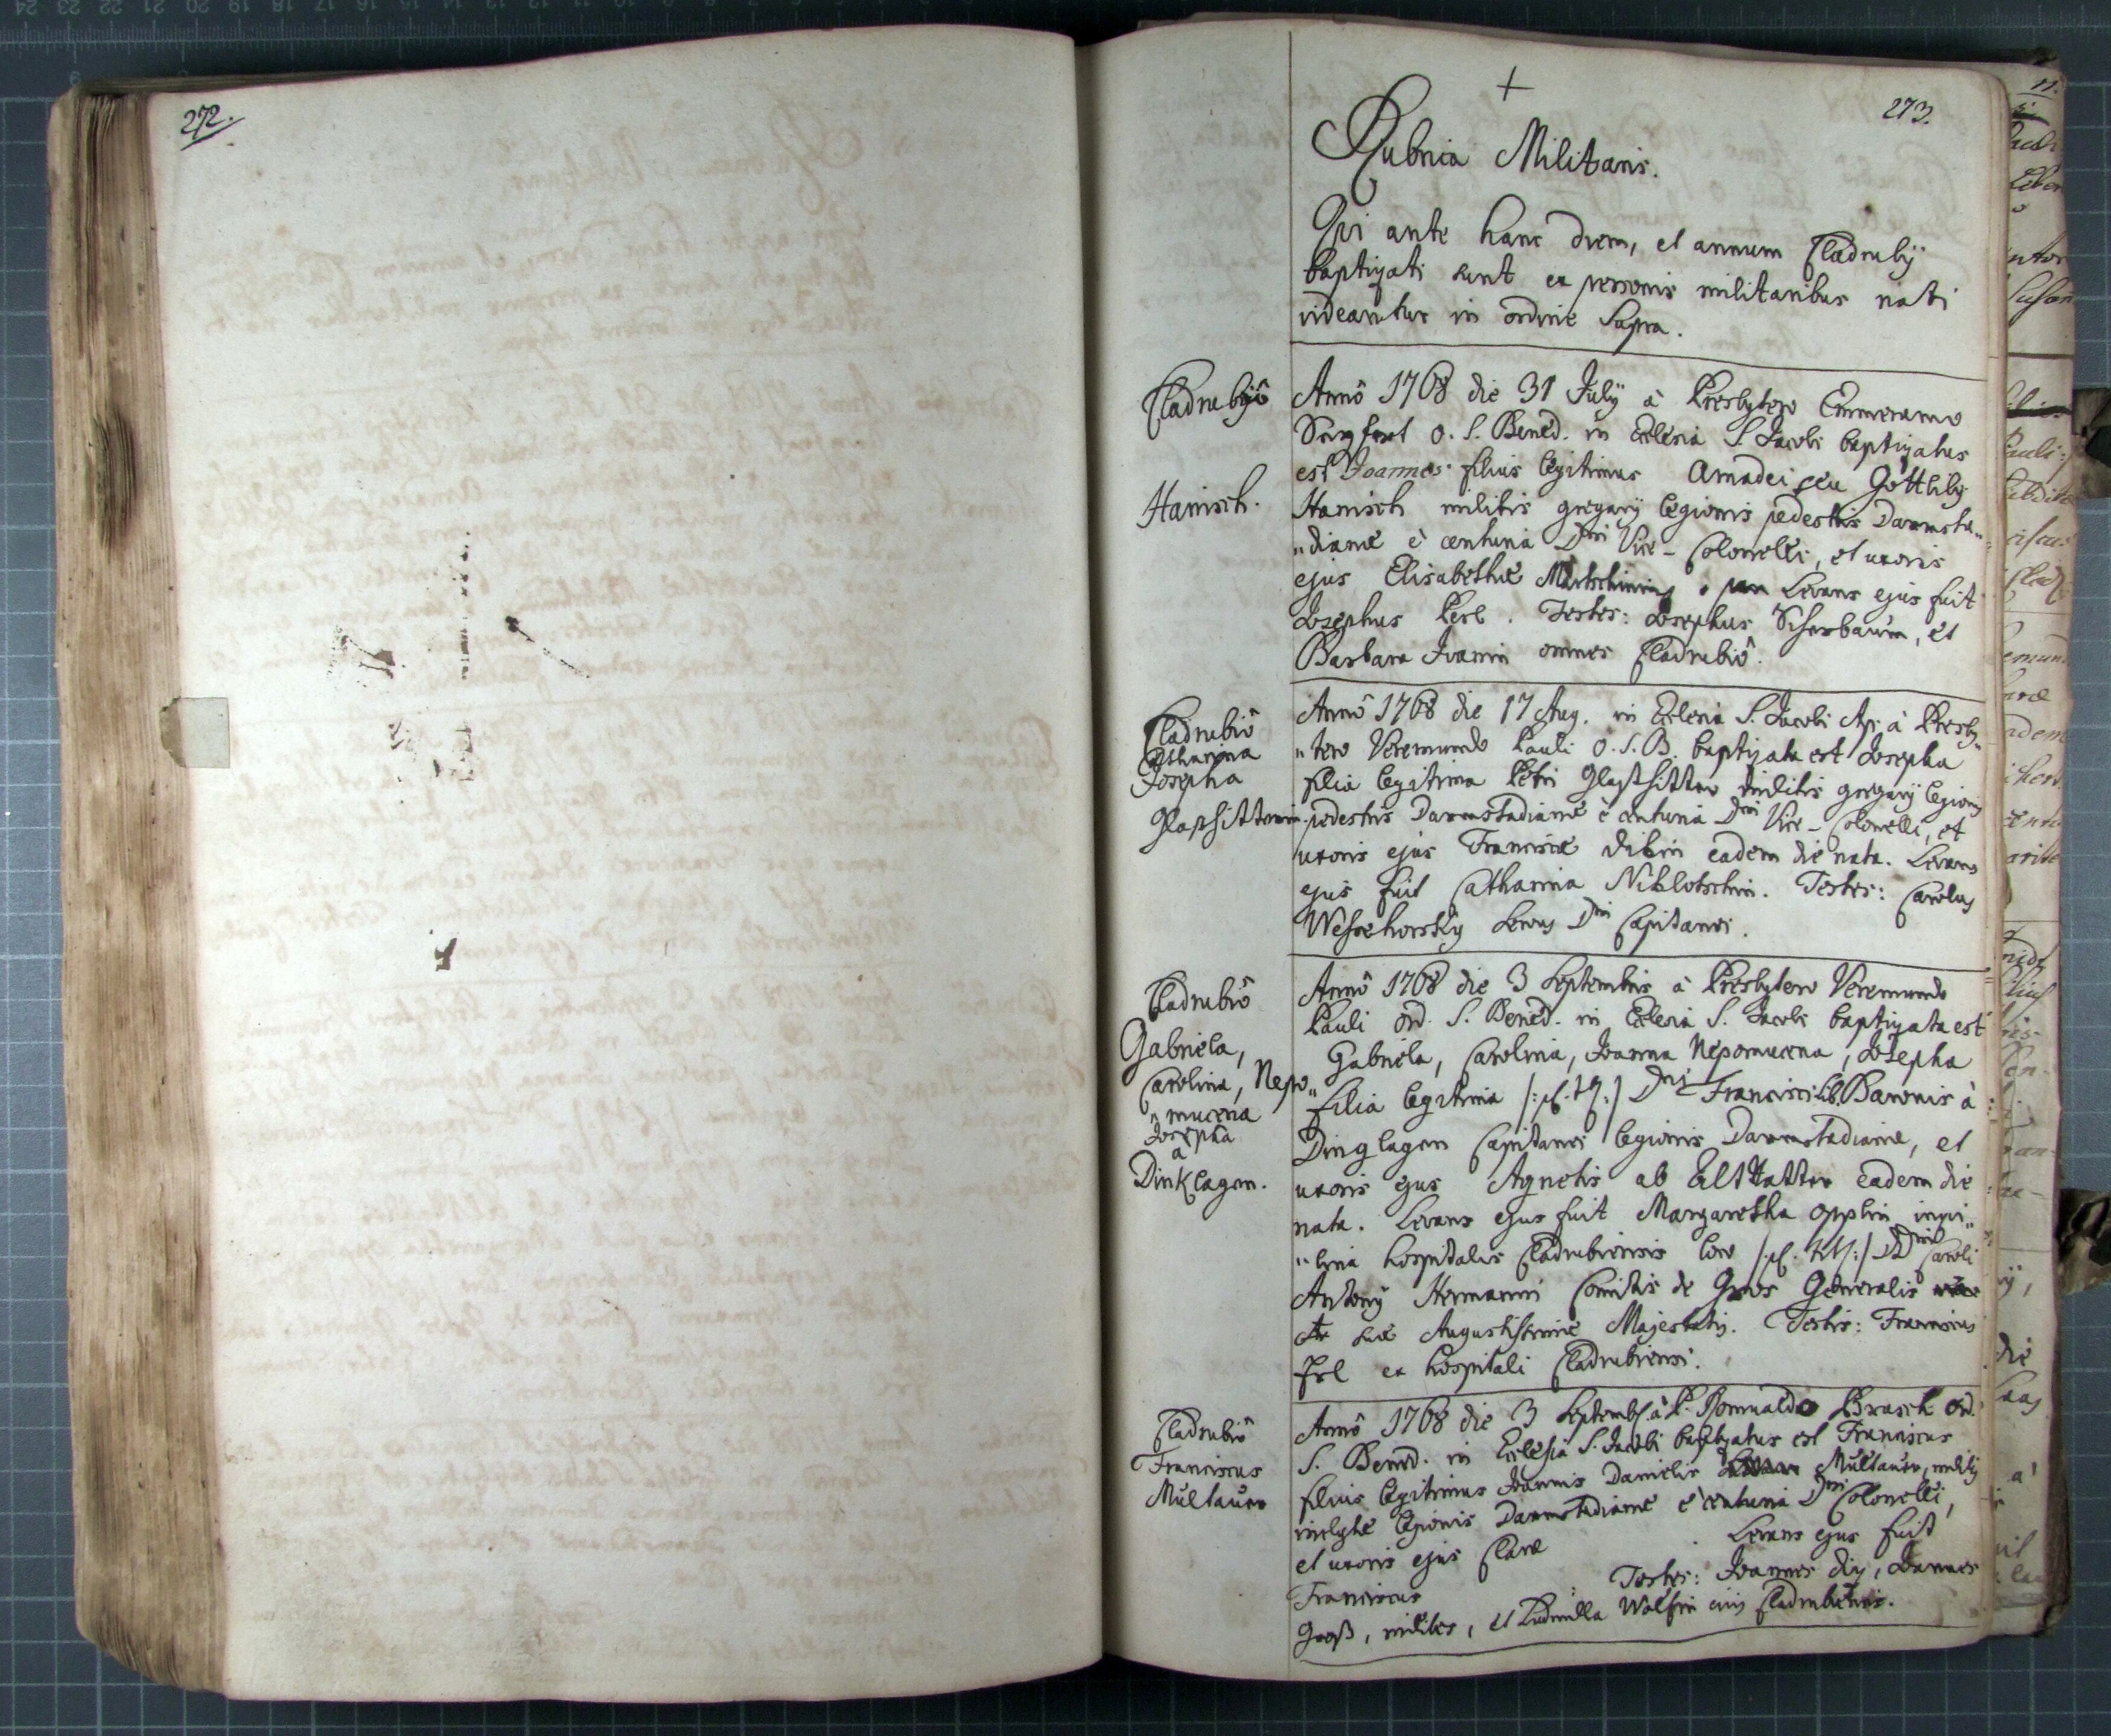 272.
273.
+
Rubrica Militaris.
Qui ante hanc diem, et annum Cladrubÿ
baptizati sunt ex personis militaribus nati
videantur in ordine supra.
Cladrubÿô
Hanisch.
Annô 1768 die 31 Julÿ à Presbytero Emmeramo
O. S. Bened. in Ecclesia S. Jacobi baptizatus
est Joannes filius legitimus Amadei seu Gottliby
Hanisch militis gregarÿ legionis pedestris Darmsta„
„dianæ è centuria Dni Vice-Colonelli, et uxoris
ejus Elisabethæ Levans ejus fuit
Josephus Perl. Testes: Josephus Scherbaum, et
Barbara Ivanin omnes Cladrubiô.
Cladrubiô
Catharina
Josepha
Glaßhitterin.
Annô 1768 die 17 Aug. in Ecclesia S. Jacobi Ap. à Presby„
„tero Veremundo Pauli O. S. B. baptizata est Josepha
filia legitima Petri Glaßhitter militis gregarÿ legionis
pedestris Darmstadianæ è centuria Dni Vice-Colonelli, et
uxoris ejus Franciscæ eadem die nata. Levans
ejus fuit Catharina Niklotschin. Testes: Carolus
servus Dni Capitanei.
Cladrubiô
Gabriela,
Carolina, Nepo„
„mucena
Josepha
à
Dinklagen.
Annô 1768 die 3 Septembris à Presbytero Veremundo
Pauli Ord. S. Bened. in Ecclesia S. Jacobi baptizata est
Gabriela, Carolina, Joanna Nepomucena, Josepha
filia legitima /: pl. tit :/ Dni Francisci Lib. Baronis à
Dinglagen Capitanei legionis Darmstadianæ, et
uxoris ejus Agnetis ab eadem die
nata. Levans ejus fuit Margaretha Opplin inqui„
„lina hospitalis Cladrubiensis loco /: pl. tit :/ Dni Caroli
Antonÿ Hermanni Comitis de Generalis
suæ Augustissimæ Majestatis. Testis: Franciscus
ex hospitali Cladrubiensi.
Cladrubiô
Franciscus
Multauer
Annô 1768 die 3 Septemb. à P. Romualdo Prasch Ord.
S. Bened. in Ecclesia S. Jacobi baptizatus est Franciscus
filius legitimus Joannis Danielis Multauer, militis
inclytæ legionis Darmstadianæ è centuria Dni Colonelli,
et uxoris ejus Claræ . Levans ejus fuit
Franciscus Testes: Joannes Joannes
Groß, milites, et Ludmilla Wolfin civis Cladrubiensis.